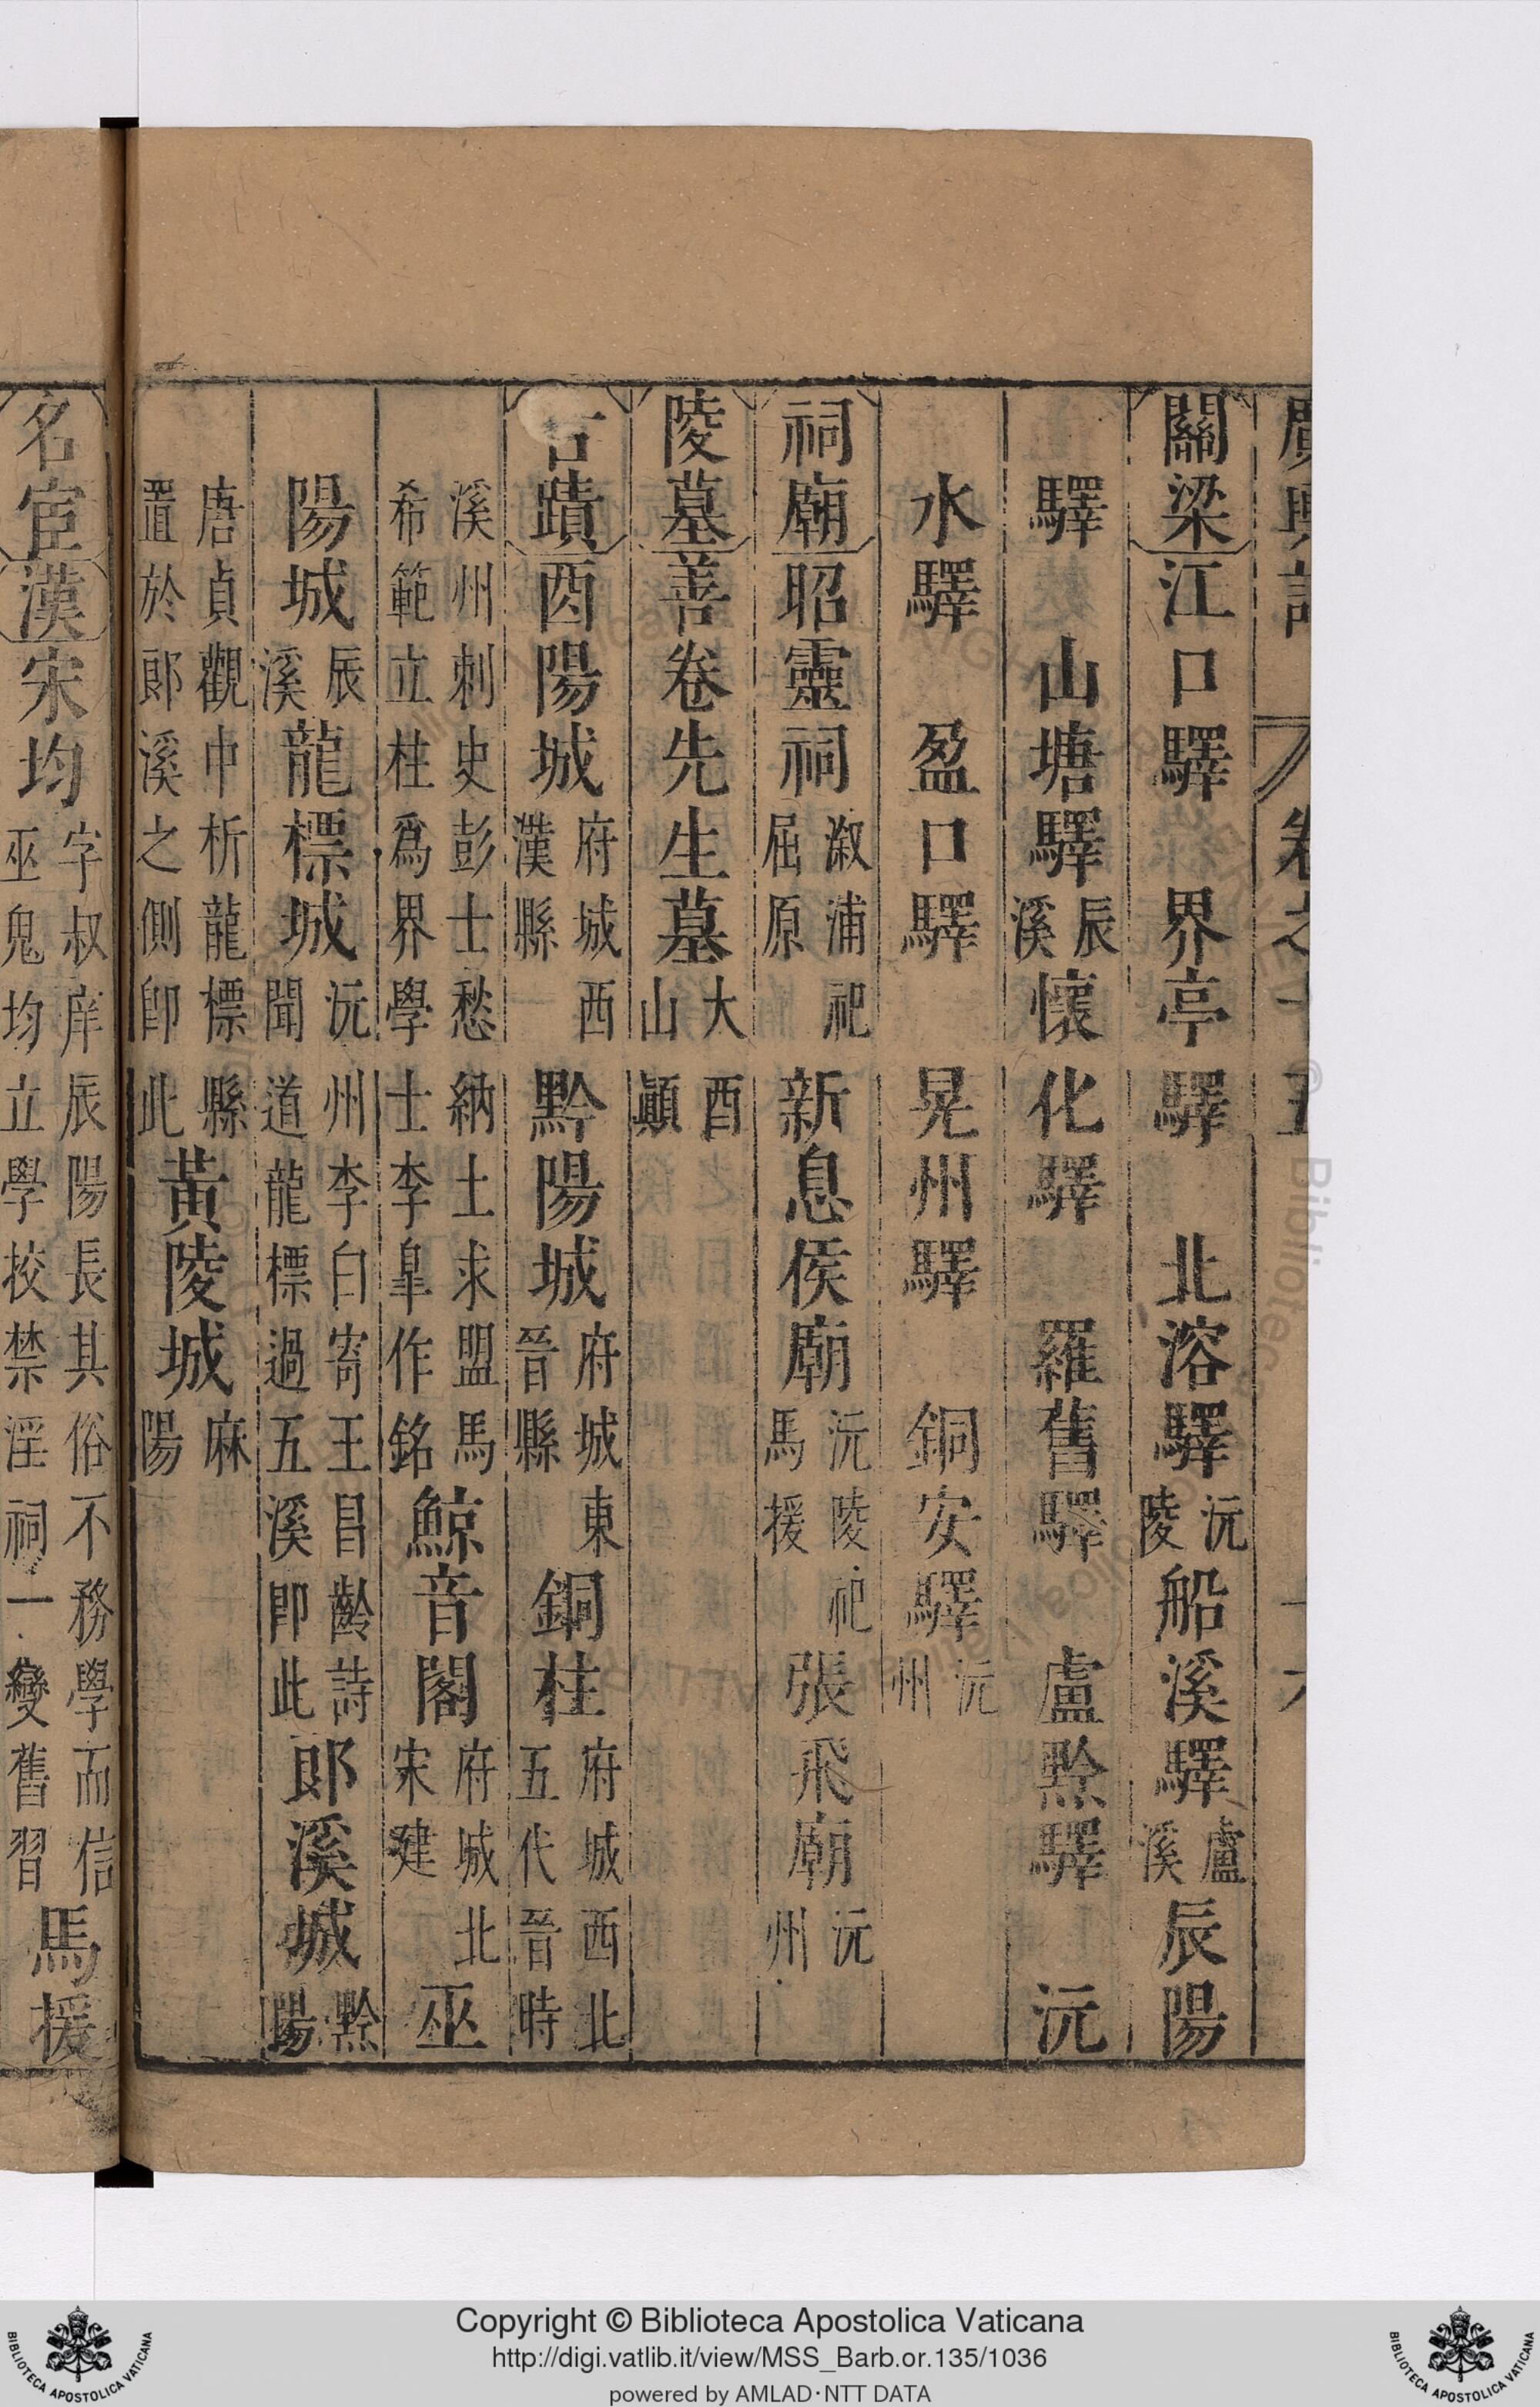 廣輿記 卷之十五 十六
關梁江口驛 界亭驛 北溶驛沅陵船溪驛盧溪辰陽
驛 山塘驛辰溪懷化驛 羅舊驛 盧黔驛 沅
水驛 盈口驛 晃州驛 銅安驛沅州
祠廟昭靈祠溆浦祀屈原新息侯廟沅陵祀馬援張飛廟沅州
陵墓善卷先生墓大酉山巔
古蹟酉陽城府城西漢縣黔陽城府城東晉縣銅柱府城西北五代晉時
溪州刺史彭士愁納土求盟馬希範立柱爲界學士李臯作銘鯨音閣府城北宋建巫
陽城辰溪龍標城沅州李白寄王昌齡詩聞道龍標過五溪卽此郎溪城黔陽
唐貞觀中析龍標縣置於郎溪之側卽此黃陵城麻陽
名宦漢宋均字叔庠辰陽長其俗不務學而信巫鬼均立學校禁淫祠一變舊習馬援
Copyright © Biblioteca Apostolica Vaticana
http://digi.vatlib.it/view/MSS_Barb.or.135/1036
powered by AMLAD·NTT DATA
BIBLIOTECA APOSTOLICA VATICANA
BIBLIOTECA APOSTOLICA VATICANA